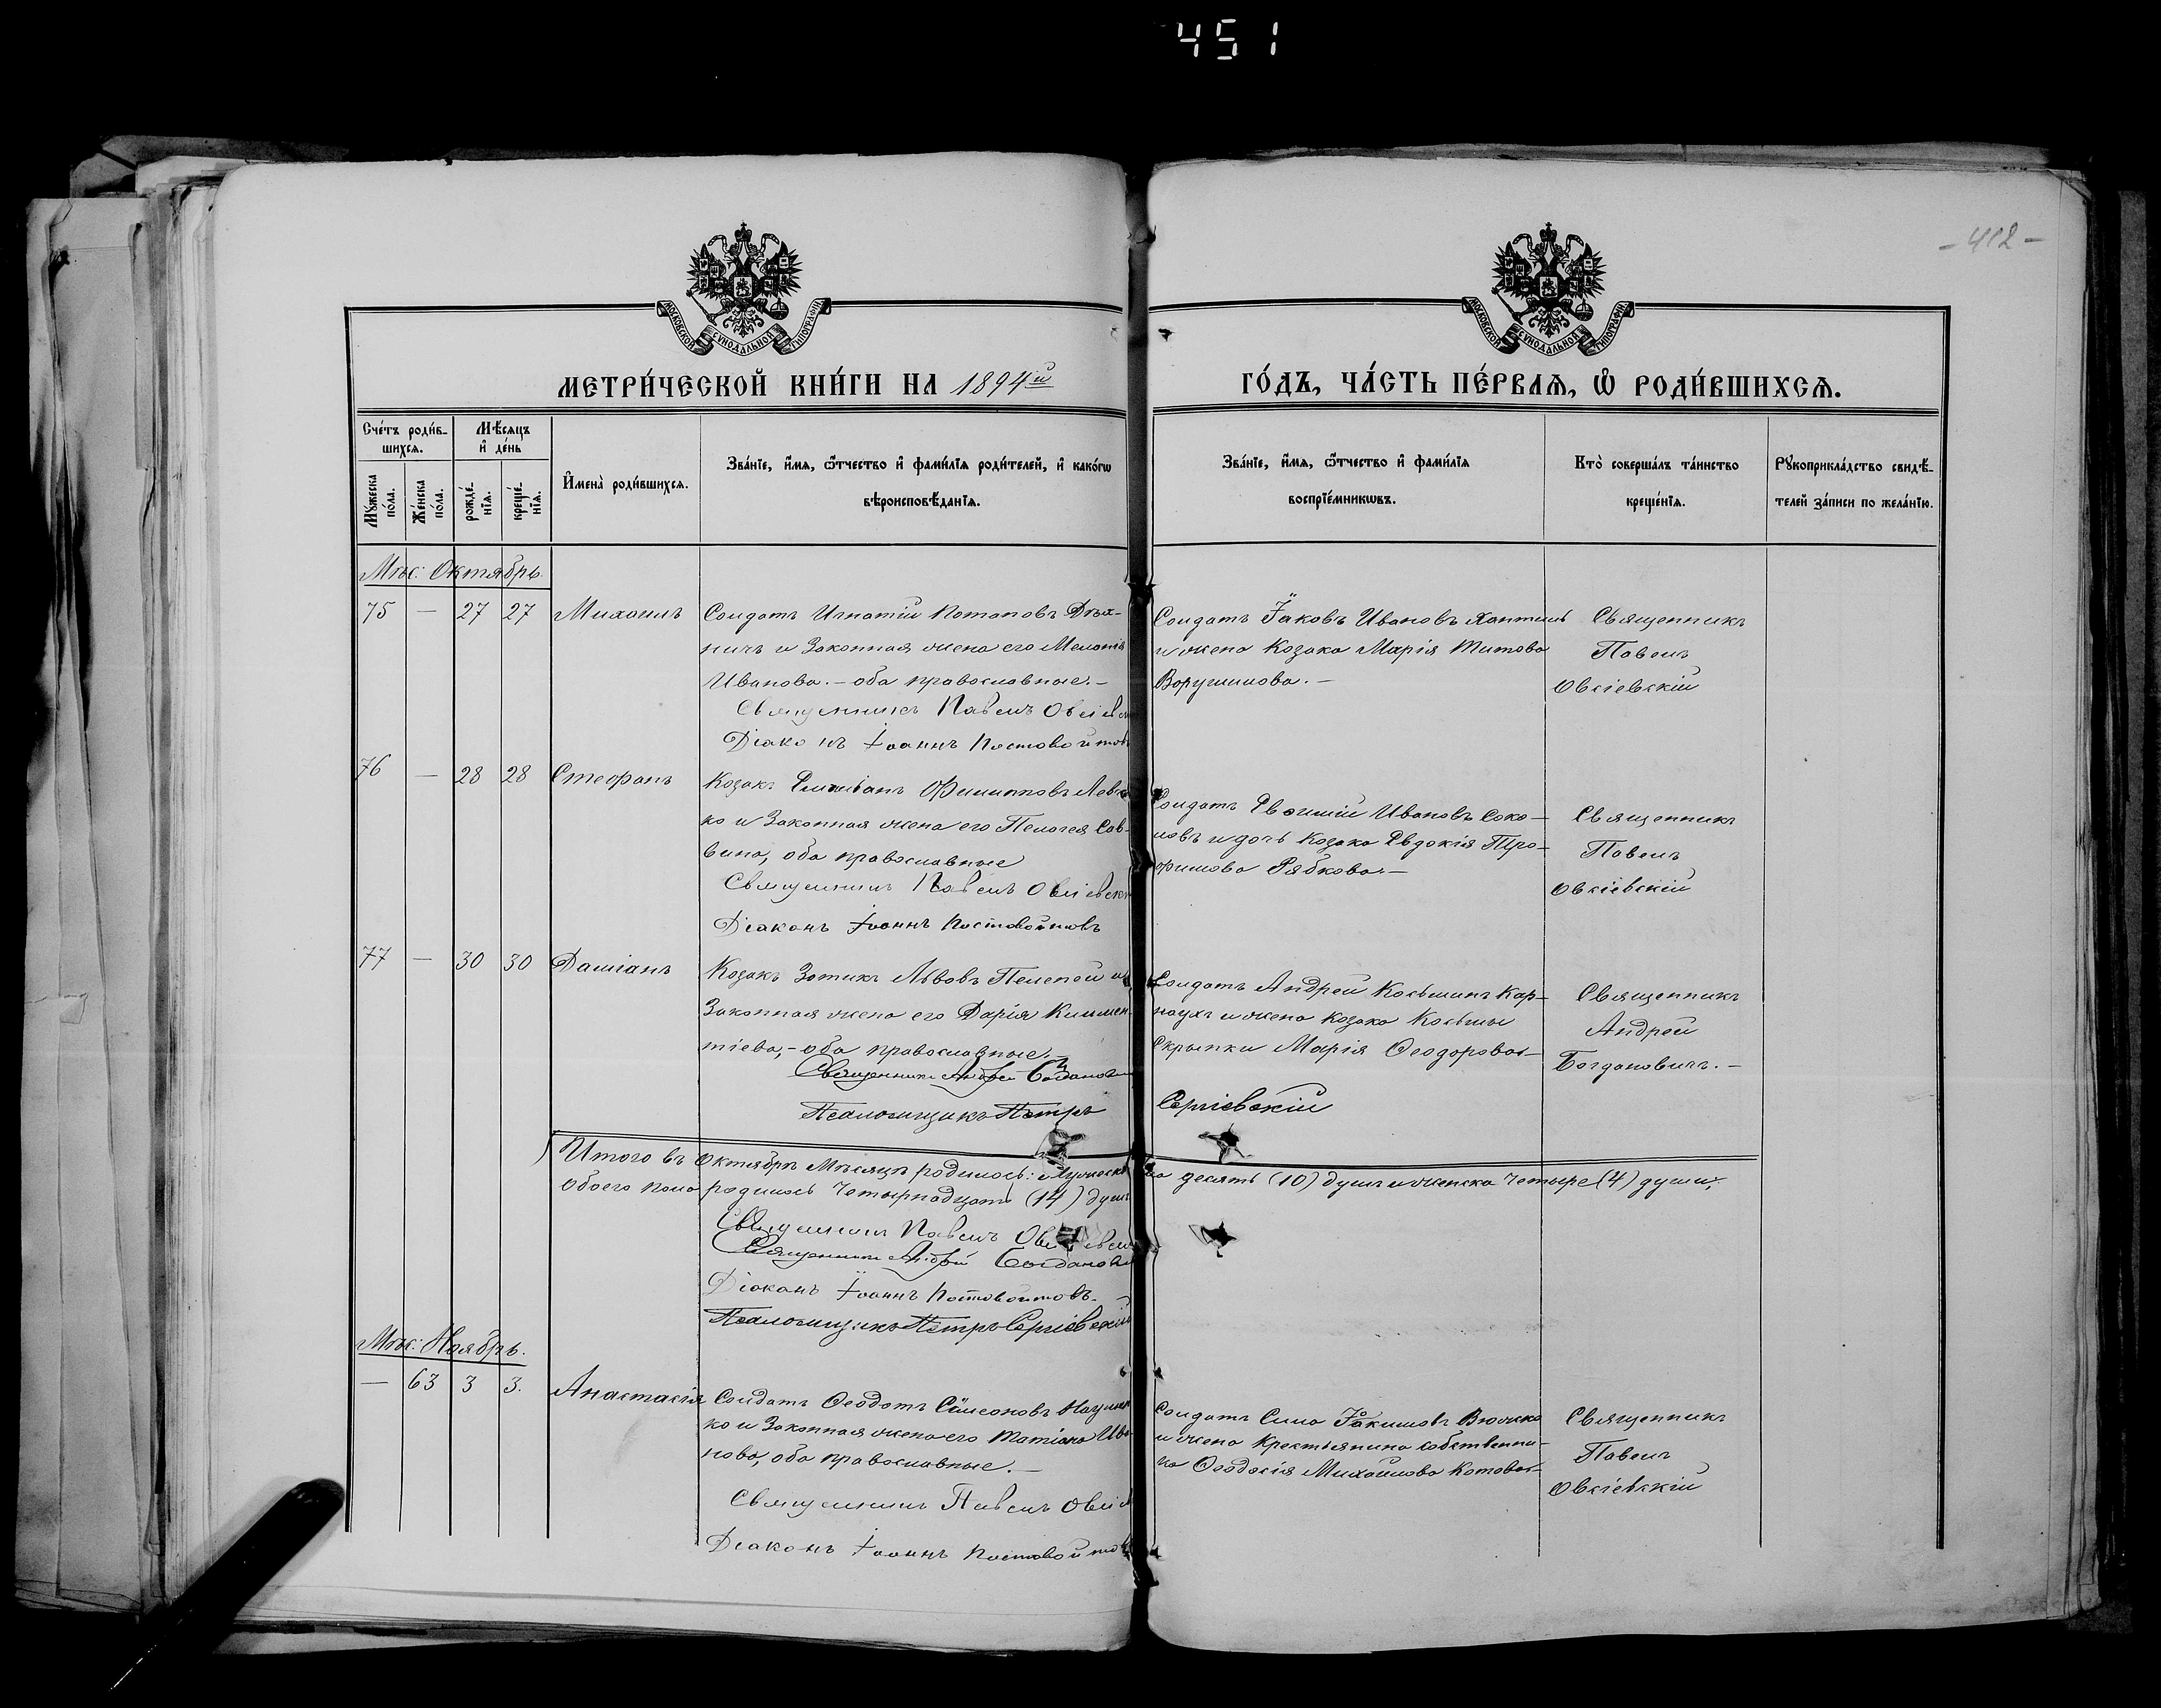 451
- 412 -
МОСКОВСКОЙ СѴНОДАЛЬНОЙ ТИПОГРАФІИ
МОСКОВСКОЙ СѴНОДАЛЬНОЙ ТИПОГРАФІИ
МЕТРИ́ЧЕСКОЙ КНИ́ГИ НА 1894й
ГО́ДЪ, ЧА́СТЬ ПЕ́РВАѦ, Ѡ РОДИ́ВШИХСѦ.
Сче́тъ роди́в-
шихся.
Мѣ́сяцъ
и҆ де́нь
Мꙋ́жеска
по́ла.
Же́нска
по́ла.
рожде́-
нїя.
креще́-
нїя.
И҆мена̀ роди́вшихся.
Зва́нїе, и҆́мя, ѻ҆́тчество и҆ фамѝлїя роди́телей, и҆ како́гѡ
вѣроисповѣ́данїя.
Зва́нїе, и҆́мя, ѻ҆́тчество и҆ фами́лїя
воспрїе́мникѡвъ.
Кто̀ соверша́лъ та́инство
креще́нїя.
Рꙋкоприкла́дство свидѣ́-
телей за́писи по жела́нїю.
Мѣс: Октябрь.
75 — 27 27 Михаилъ
Солдатъ Игнатій Потаповъ
и Законная жена его Меланія
Иванова. — оба православные. —
Священникъ Павелъ
Діаконъ Іоаннъ
Солдатъ Іаковъ Ивановъ
и жена Козака Марія Титова
Священникъ
Павелъ
Овсіевскій
76 — 28 28 Стефанъ
Козакъ Филипповъ
ко и Законная жена его Пелагея Сав-
вина, оба православные
Священникъ Павелъ
Діаконъ Іоаннъ Постовойтовъ
Солдатъ Евѳимій Ивановъ Соко-
ловъ и дочь Козака Евдокія Тро-
фимова Рябкова. —
Священникъ
Павелъ
Овсіевскій
77 — 30 30 Даміанъ
Козакъ Зотикъ Львовъ Пелепей и
Законная жена его Дарія Климен-
тіева, — оба православные. —
Священникъ Андрей
Псаломщикъ Петръ Сергіевскій
Солдатъ Андрей Косьминъ Кар-
наухъ и жена Козака Косьмы
Скрыпки Марія Ѳеодорова —
Священникъ
Андрей
Богдановичъ. —
Итого въ Октябрѣ Мѣсяцѣ родилось: десять (10) душъ и женска Четыре (4) души,
обоего пола родилось Четырнадцать (14) душъ
Священникъ Павелъ
Священникъ Андрей
Діаконъ Іоаннъ Постовойтовъ.
Псаломщикъ Петръ Сергіевскій
Мѣс: Ноябрь.
— 63 3 3. Анастасія
Солдатъ Ѳеодотъ Сѵмеоновъ
ко и Законная жена его Татіана Ива-
нова, оба православные. —
Священникъ Павелъ
Діаконъ Іоаннъ
Солдатъ Сила Іоакимовъ
и жена Крестьянина собственни-
ка Ѳеодосія Михайлова Котова —
Священникъ
Павелъ
Овсіевскій